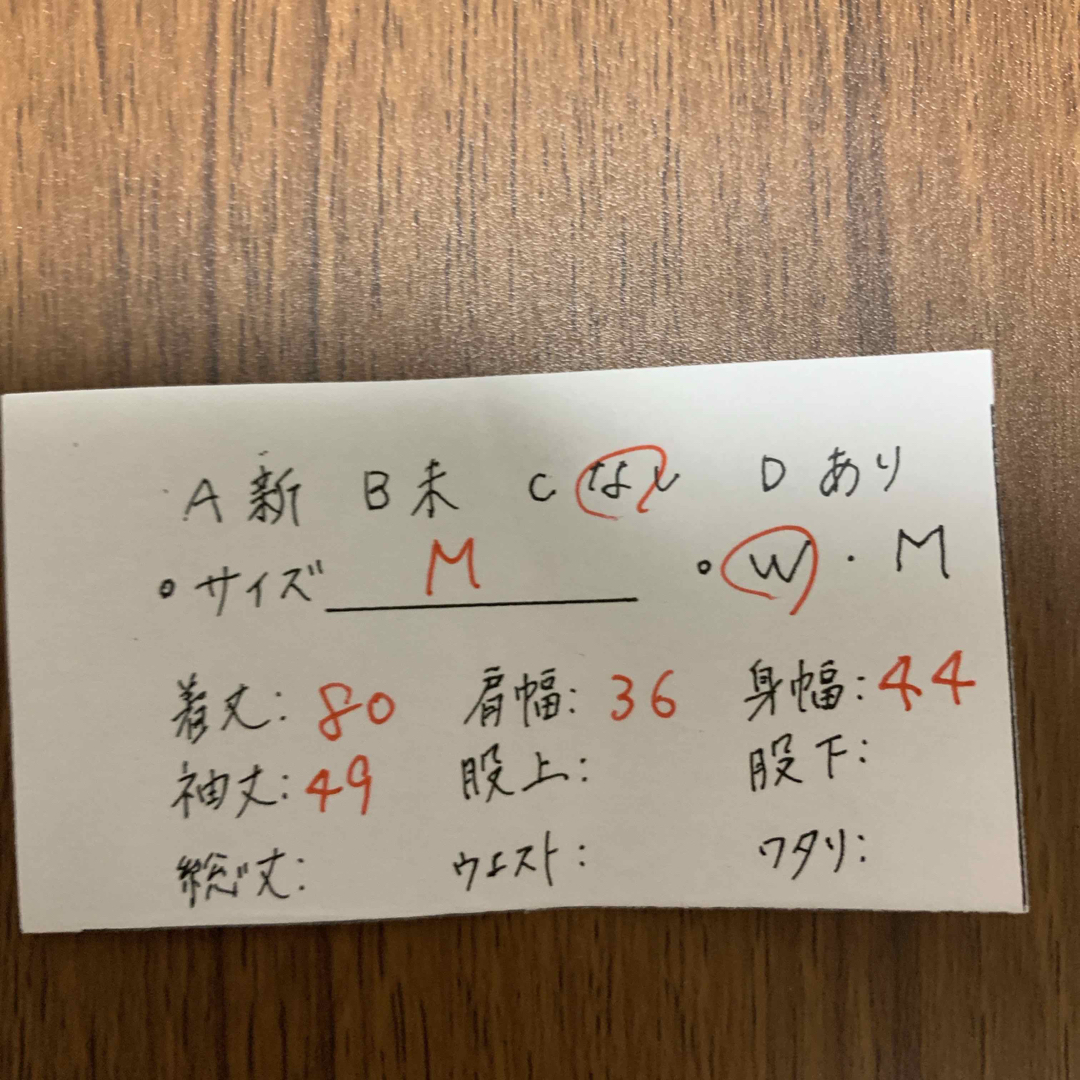 A 新 B 未 C なし D あり
○ サイズ M ○ W ・ M
着丈: 80 肩幅: 36 身幅: 44
袖丈: 49 股上: 股下:
総丈: ウエスト: ワタリ: